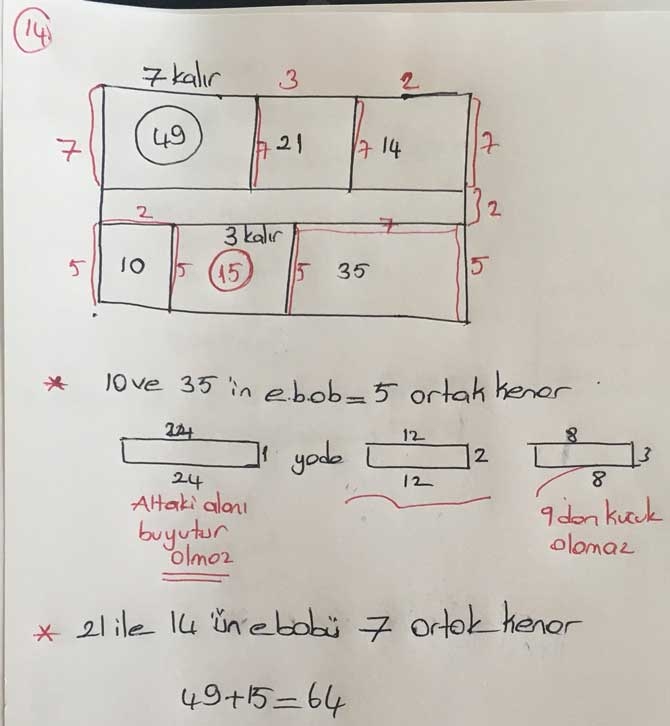 14.
7 kalır 3 2
7 49 7 21 7 14 7
2
2 3 kalır 7
5 10 5 15 5 35 5
* 10 ve 35 in e.b.ob = 5 ortak kenar
24 1 yada 12 2 8 3
24 12 8
Alttaki alanı
büyütür
olmaz
9 dan küçük
olamaz
* 21 ile 14 ün ebobü 7 ortak kenar
49+15=64